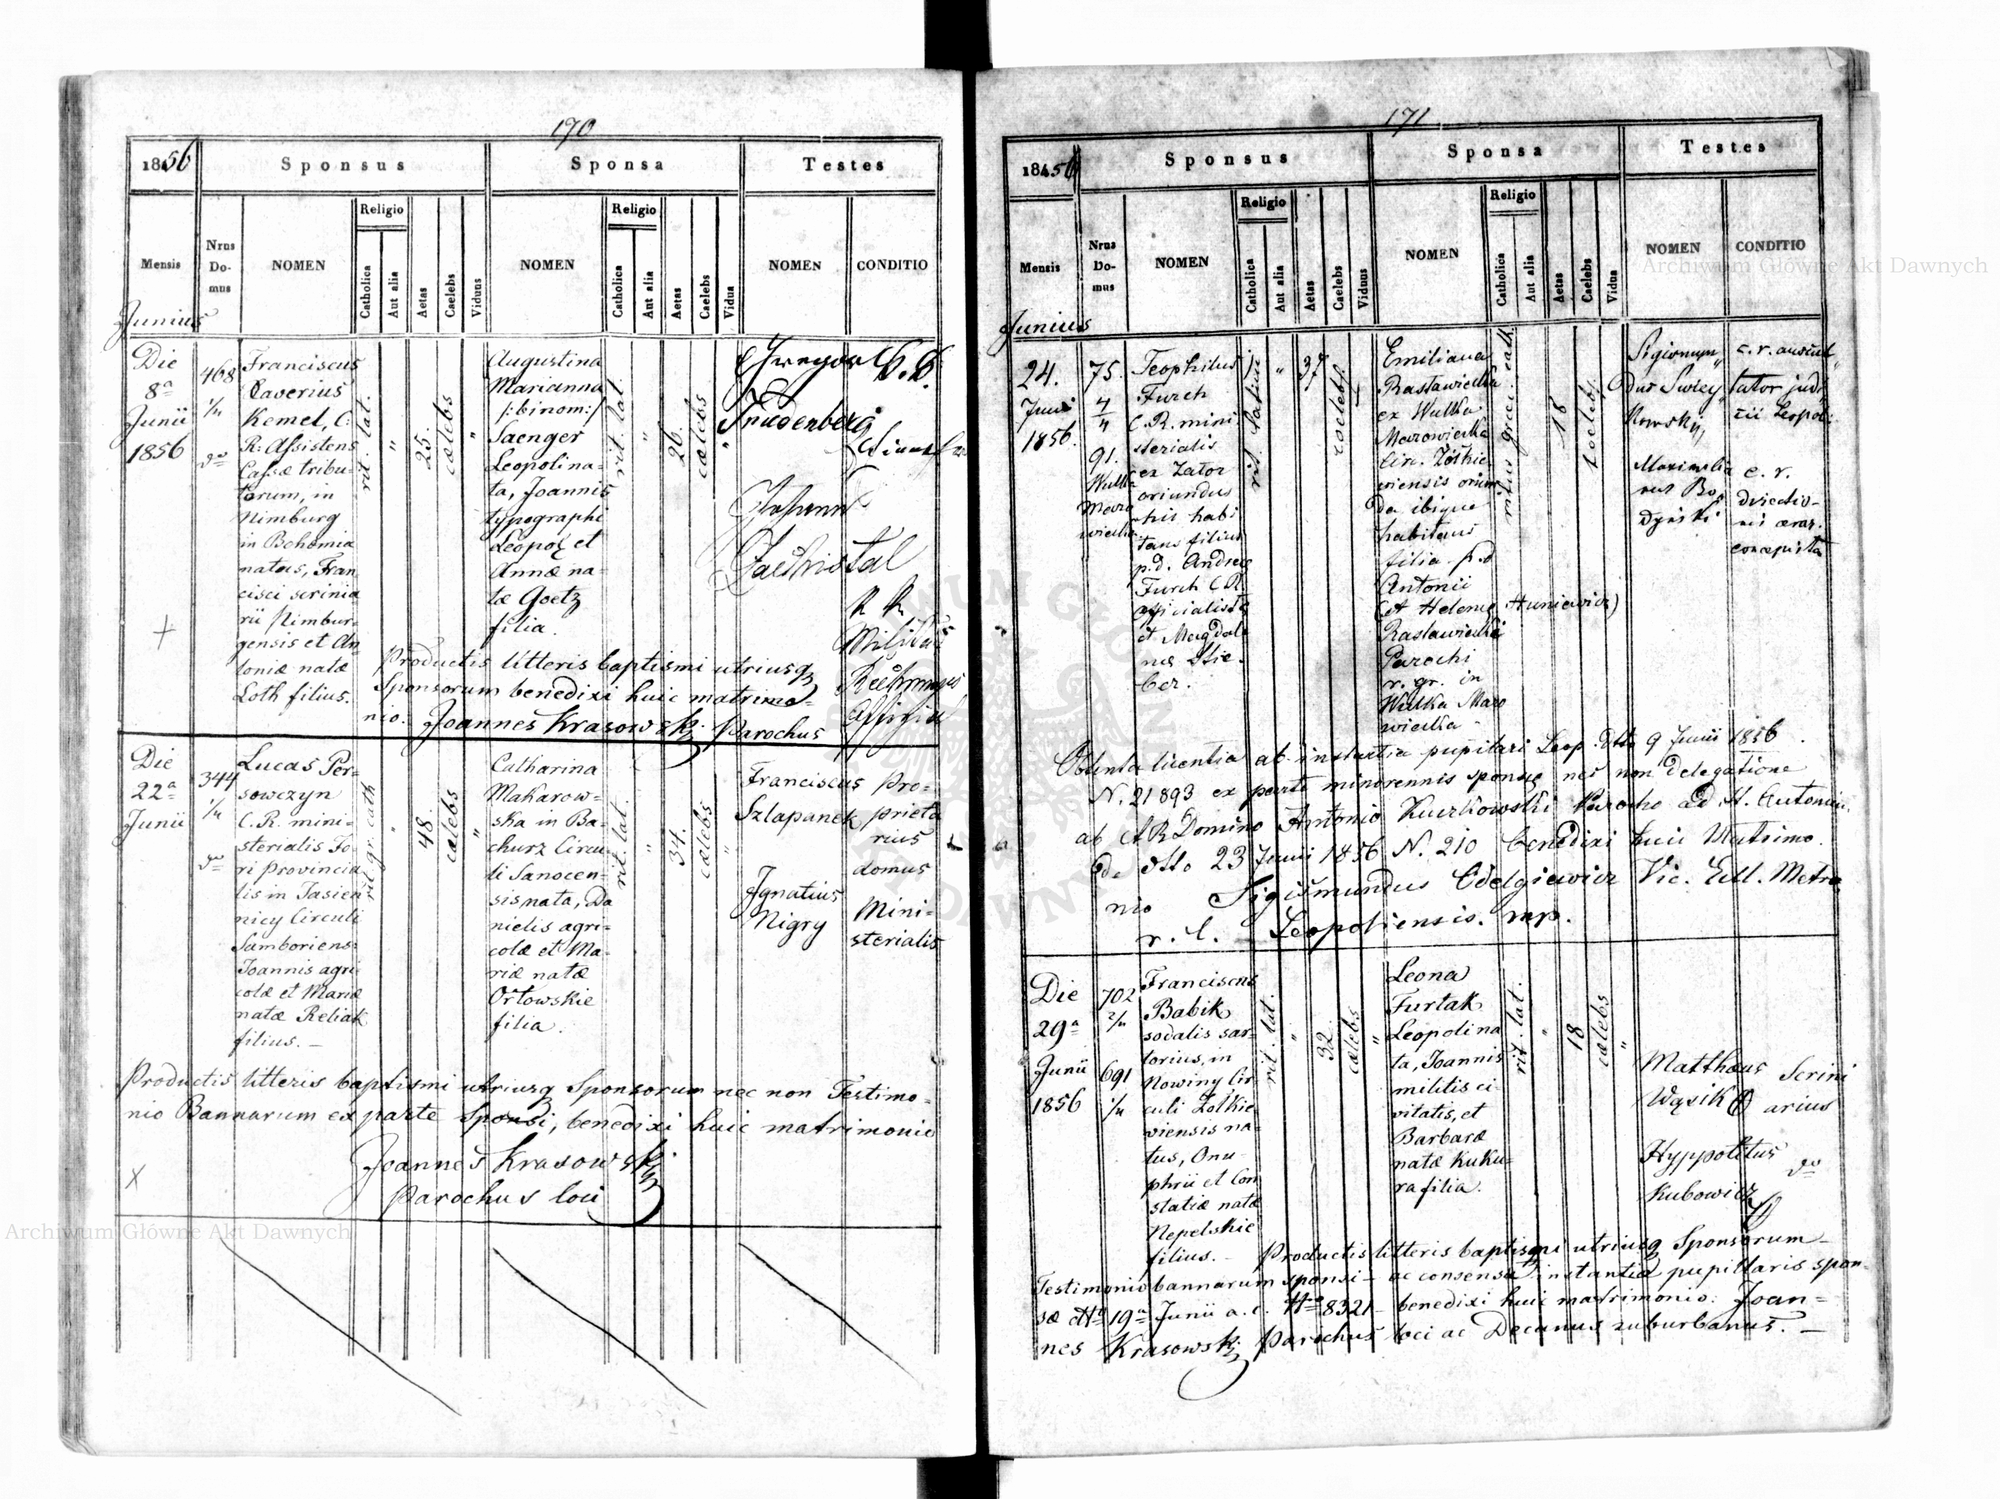 170
1856
Sponsus
Sponsa
Testes
Mensis
Nrus Do-mus
NOMEN
Religio
Catholica
Aut alia
Aetas
Caelebs
Viduus
NOMEN
Religio
Catholica
Aut alia
Aetas
Caelebs
Vidua
NOMEN
CONDITIO
Junius
Die
8ª
Junii
1856
468
1/4
do
Franciscus
Xaverius
Kemel, C.
R. Assistens
Cassæ tribu-
torum, in
Nimburg
in Bohemia
natus, Fran
cisci scrinia
rii Nimbur
gensis et An
toniæ natæ
Loth filius.
rit. lat.
"
25.
cælebs
"
Augustina
Marianna
/:binom:/
Saenger
Leopoli na-
ta, Joannis
typographi
Leopol et
Annæ na-
tæ Goetz
filia.
rit. lat.
"
26.
cælebs
"
Johann
Productis litteris baptismi utriusq
Sponsorum benedixi huic matrimo-
nio. Joannes Krasowski Parochus
Die
22ª
Junii
344
1/4
do
Lucas Per-
sowczyn
C. R. mini-
sterialis Fo-
ri provincia
lis in Jasien
nicy Circuli
Samboriens-
Joannis agri
colæ et Mariæ
natæ Reliak
filius. —
rit. gr. cath
"
48.
cælebs
"
Catharina
Makarow-
ska in Ba-
churz Circu-
li Sanocen-
sis nata, Da
nielis agri-
colæ et Ma-
riæ natæ
Orłowskie
filia.
rit. lat.
"
34.
cælebs
"
Franciscus
Szlapanek
pro-
prieta
rius
domus
Ignatius
Nigry
Mini-
sterialis
Productis litteris baptismi utriusq Sponsorum nec non Testimo-
nio Bannorum ex parte Sponsi, benedixi huic matrimonio
Joannes Krasowski
Parochus loci
171
1856
Sponsus
Sponsa
Testes
Mensis
Nrus Do-mus
NOMEN
Religio
Catholica
Aut alia
Aetas
Caelebs
Viduus
NOMEN
Religio
Catholica
Aut alia
Aetas
Caelebs
Vidua
NOMEN
CONDITIO
Junius
24.
Juni
1856.
75.
4/4
91.
Wulka
Mazo
wiecka
Teophilus
Furch
C. R. mini
sterialis
ex Zator
oriundus
his habi
tans filius
p.d. Andreæ
Furch C.R.
officialistæ
et Magdale
næ Stie-
ber.
rit. latini
"
37
coelebs.
Emiliana
Rastawiecka
ex Wulka
Mazowiecka
Circ. Żółkie
wiensis oriun
da ibique
habitans
filia p.d
Antonii
et Helenæ Huniewicz)
Rastawiecki
Parochi
r. gr. in
Wulka Mazo
wiecka
ritus græci cath
18
coelebs,
Sigismun"
dus Swiey"
kowsky
c. r. auscul"
tator judi
cii Leopoli
Maximilia
nus Bo
dyński
c. r.
directio-
nis ærar.
concepista
Obtenta licentia ab instantia pupilari Leop. dtto 9 Junii 1856.
N. 21893 ex parte minorennis sponsæ nec non delegatione
ab A R Domino Antonio Kuczkowski Parocho ad St. Antonium
de dtto 23 Junii 1856 N. 210 benedixi huic Matrimo
nio Sigismundus Odelgiewicz Vic. Eccl. Metro
r. l. Leopoliensis. mp.
Die
29ª
Junii
1856
702
2/4
691
1/4
Franciscus
Babik
sodalis sar-
torius, in
Nowiny Cir
culi Żółkie
viensis na-
tus, Onu
phrii et Con
statiæ natæ
Nepelskie
filius. —
rit. lat.
"
32.
cælebs
"
Leona
Furtak
Leopoli na
ta, Joannis
militis ci-
vitatis, et
Barbaræ
natæ Kuku-
ra filia.
rit. lat.
"
18
cælebs
"
Matthæus
Wąsik
Scrini
arius
Hyppolitus
Kubowicz
do
Productis litteris baptismi utriusq Sponsorum
Testimonio bannorum sponsi — ac consensu instantiæ pupillaris spon-
sæ dtto 19ª Junii a. c. Nº 8321 — benedixi huic matrimonio. Joan-
nes Krasowski Parochus loci ac Decanus suburbanus. —
Archiwum Główne Akt Dawnych
Archiwum Główne Akt Dawnych